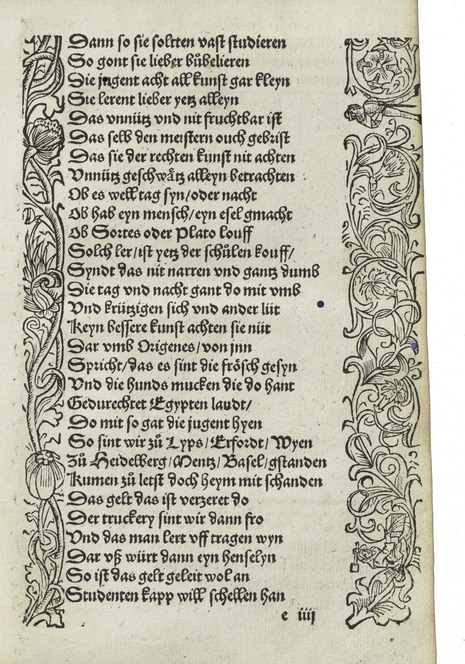 Dann so sie soltten vast studieren
So gont sie lieber bůbelieren
Die jugent acht all kunst gar kleyn
Sie lerent lieber yetz alleyn
Das vnnütz vnd nit fruchtbar ist
Das selb den meistern ouch gebrist
Das sie der rechten kunst nit achten
Vnnütz geschwätz alleyn betrachten
Ob es well tag syn / oder nacht
Ob hab eyn mensch / eyn esel gmacht
Ob Sortes oder Plato louff
Solch ler / ist yetz der schůlen kouff /
Syndt das nit narren vnd gantz dumb
Die tag vnd nacht gant do mit vmb
Vnd krützigen sich vnd ander lüt
Keyn bessere kunst achten sie nüt
Dar vmb Origenes / von jnn
Spricht / das es sint die frösch gesyn
Vnd die hunds mucken die do hant
Gedurechtet Egypten landt /
Do mit so gat die jugent hyen
So sint wir zů Lyps / Erfordt / Wyen
Zů Heidelberg / Mentz / Basel / gstanden
Kumen zů letst doch heym mit schanden
Das gelt das ist verzeret do
Der truckery sint wir dann fro
Vnd das man lert vff tragen wyn
Dar vß würt dann eyn henselyn
So ist das gelt geleit wol an
Studenten kapp will schellen han
e iiij